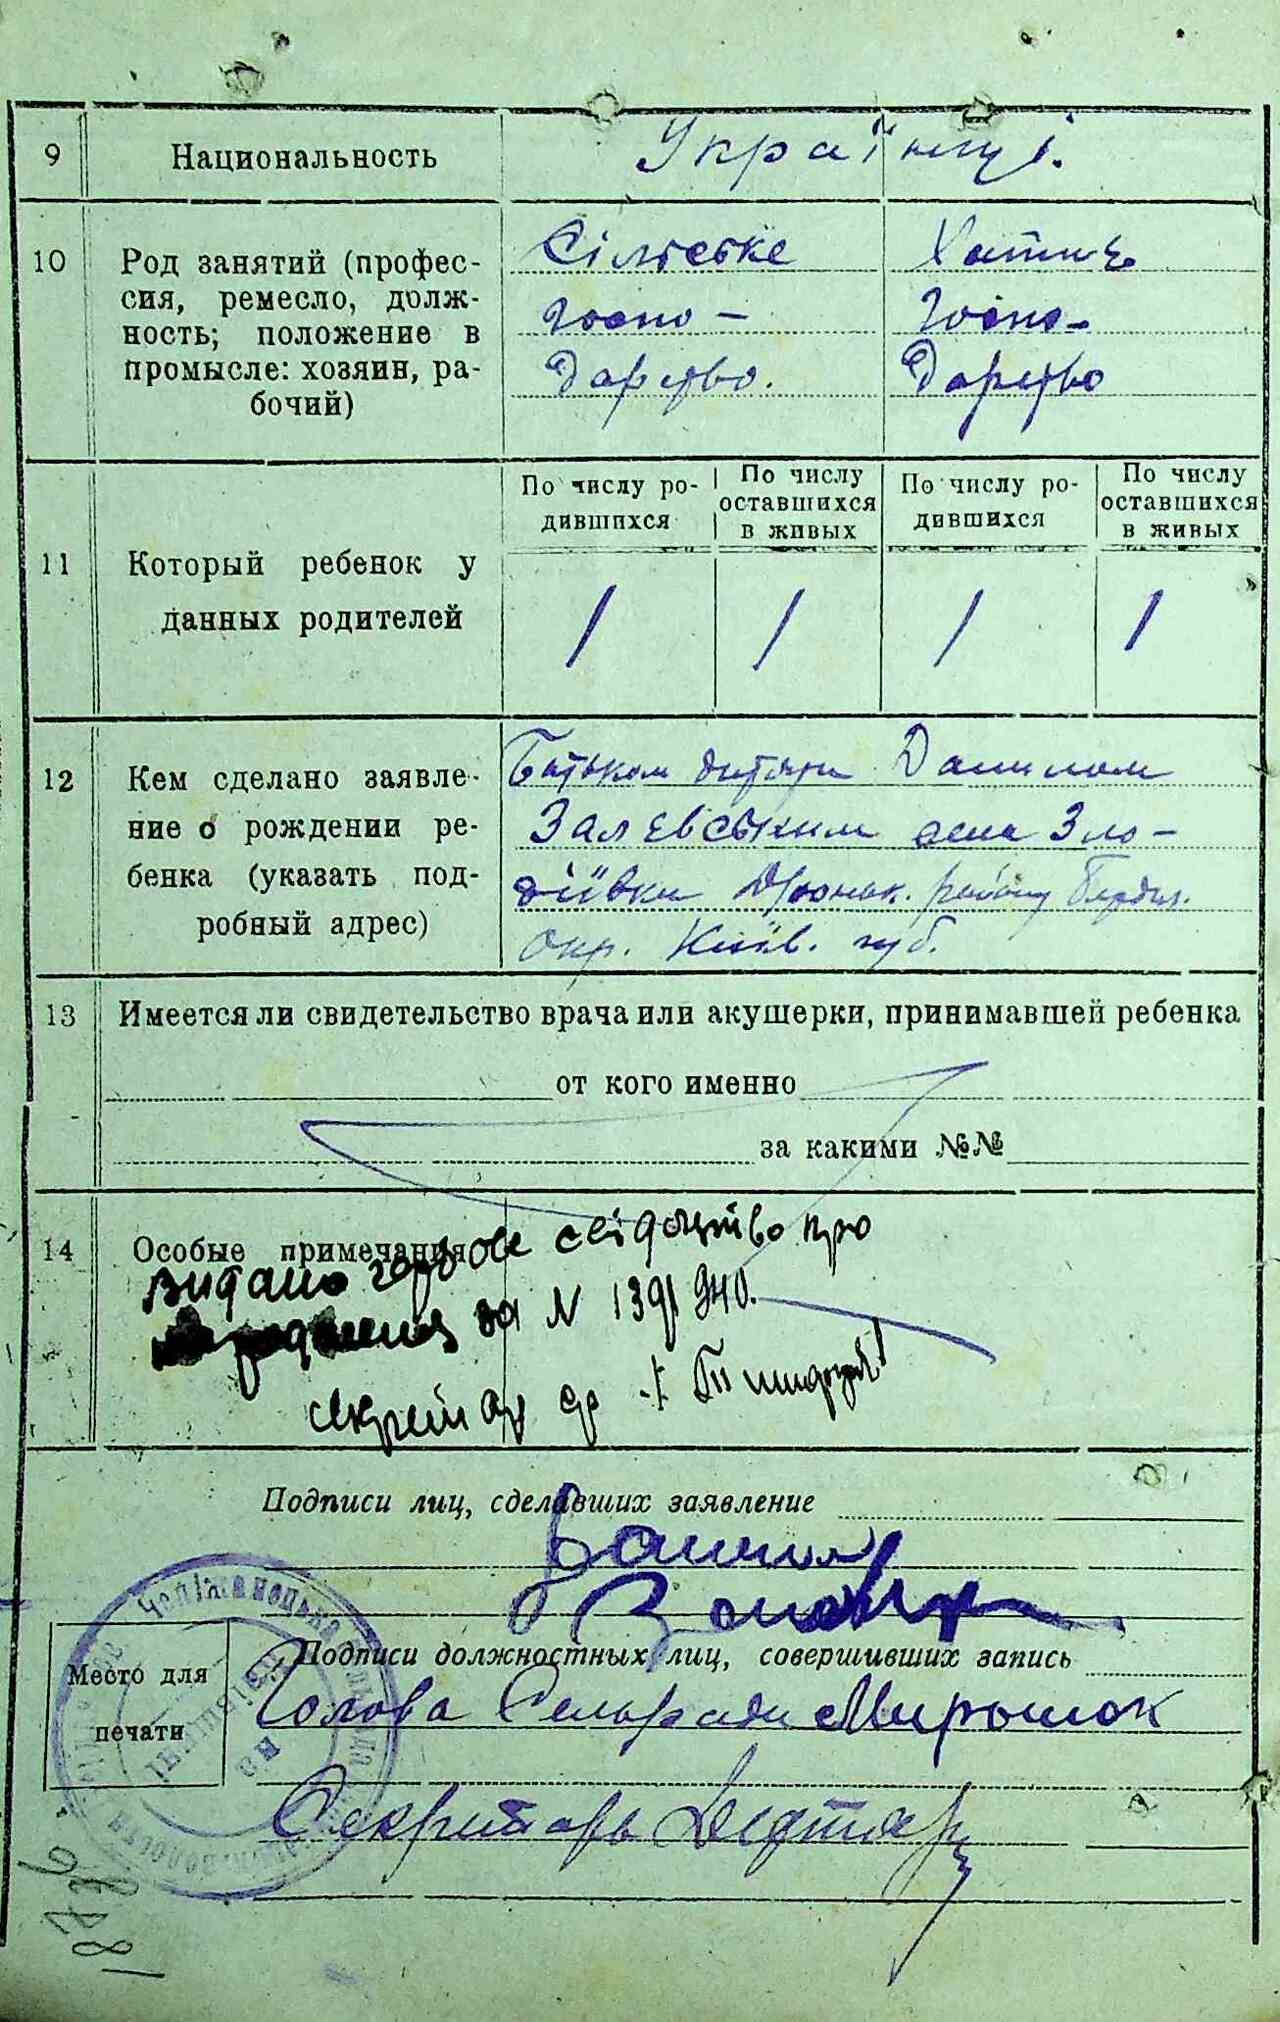 9 Национальность Українці.
10 Род занятий (профес-
сия, ремесло, долж-
ность; положение в
промысле: хозяин, ра-
бочий)
Сільське
госпо -
дарство.
Хатнє
госпо-
дарство
По число ро-
дившихся
По числу
оставшихся
в живых
По числу ро-
дившихся
По числу
оставшихся
в живых
11 Который ребенок у
данных родителей
1 1 1 1
12 Кем сделано заявле-
ние о рождении ре-
бенка (указать под-
робный адрес)
Батьком дитяти Данилом
Залевським села Зло-
діївки район Бердич.
окр. Київ. губ.
13 Имеется ли свидетельство врача или акушерки, принимавшей ребенка
от кого именно
за какими №№
14 Особые примечания
видано свідоцтво про
народження за N
секретар ср
Подписи лиц, сделавших заявление
Данил
Подписи должностных лиц, совершивших запись
Место для
печати
Голова Сельради Мирошок
Секретарь